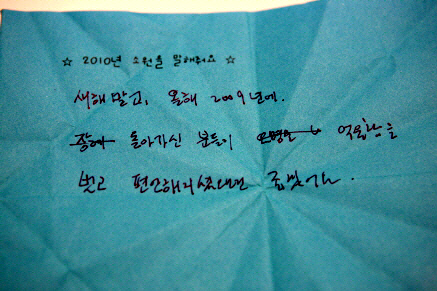 ☆ 2010년 소원을 말해줘요 ☆
새해 말고, 올해 2009년에.
돌아가신 분들이 억울함을
벗고 편안해지셨다면 좋겠어요.